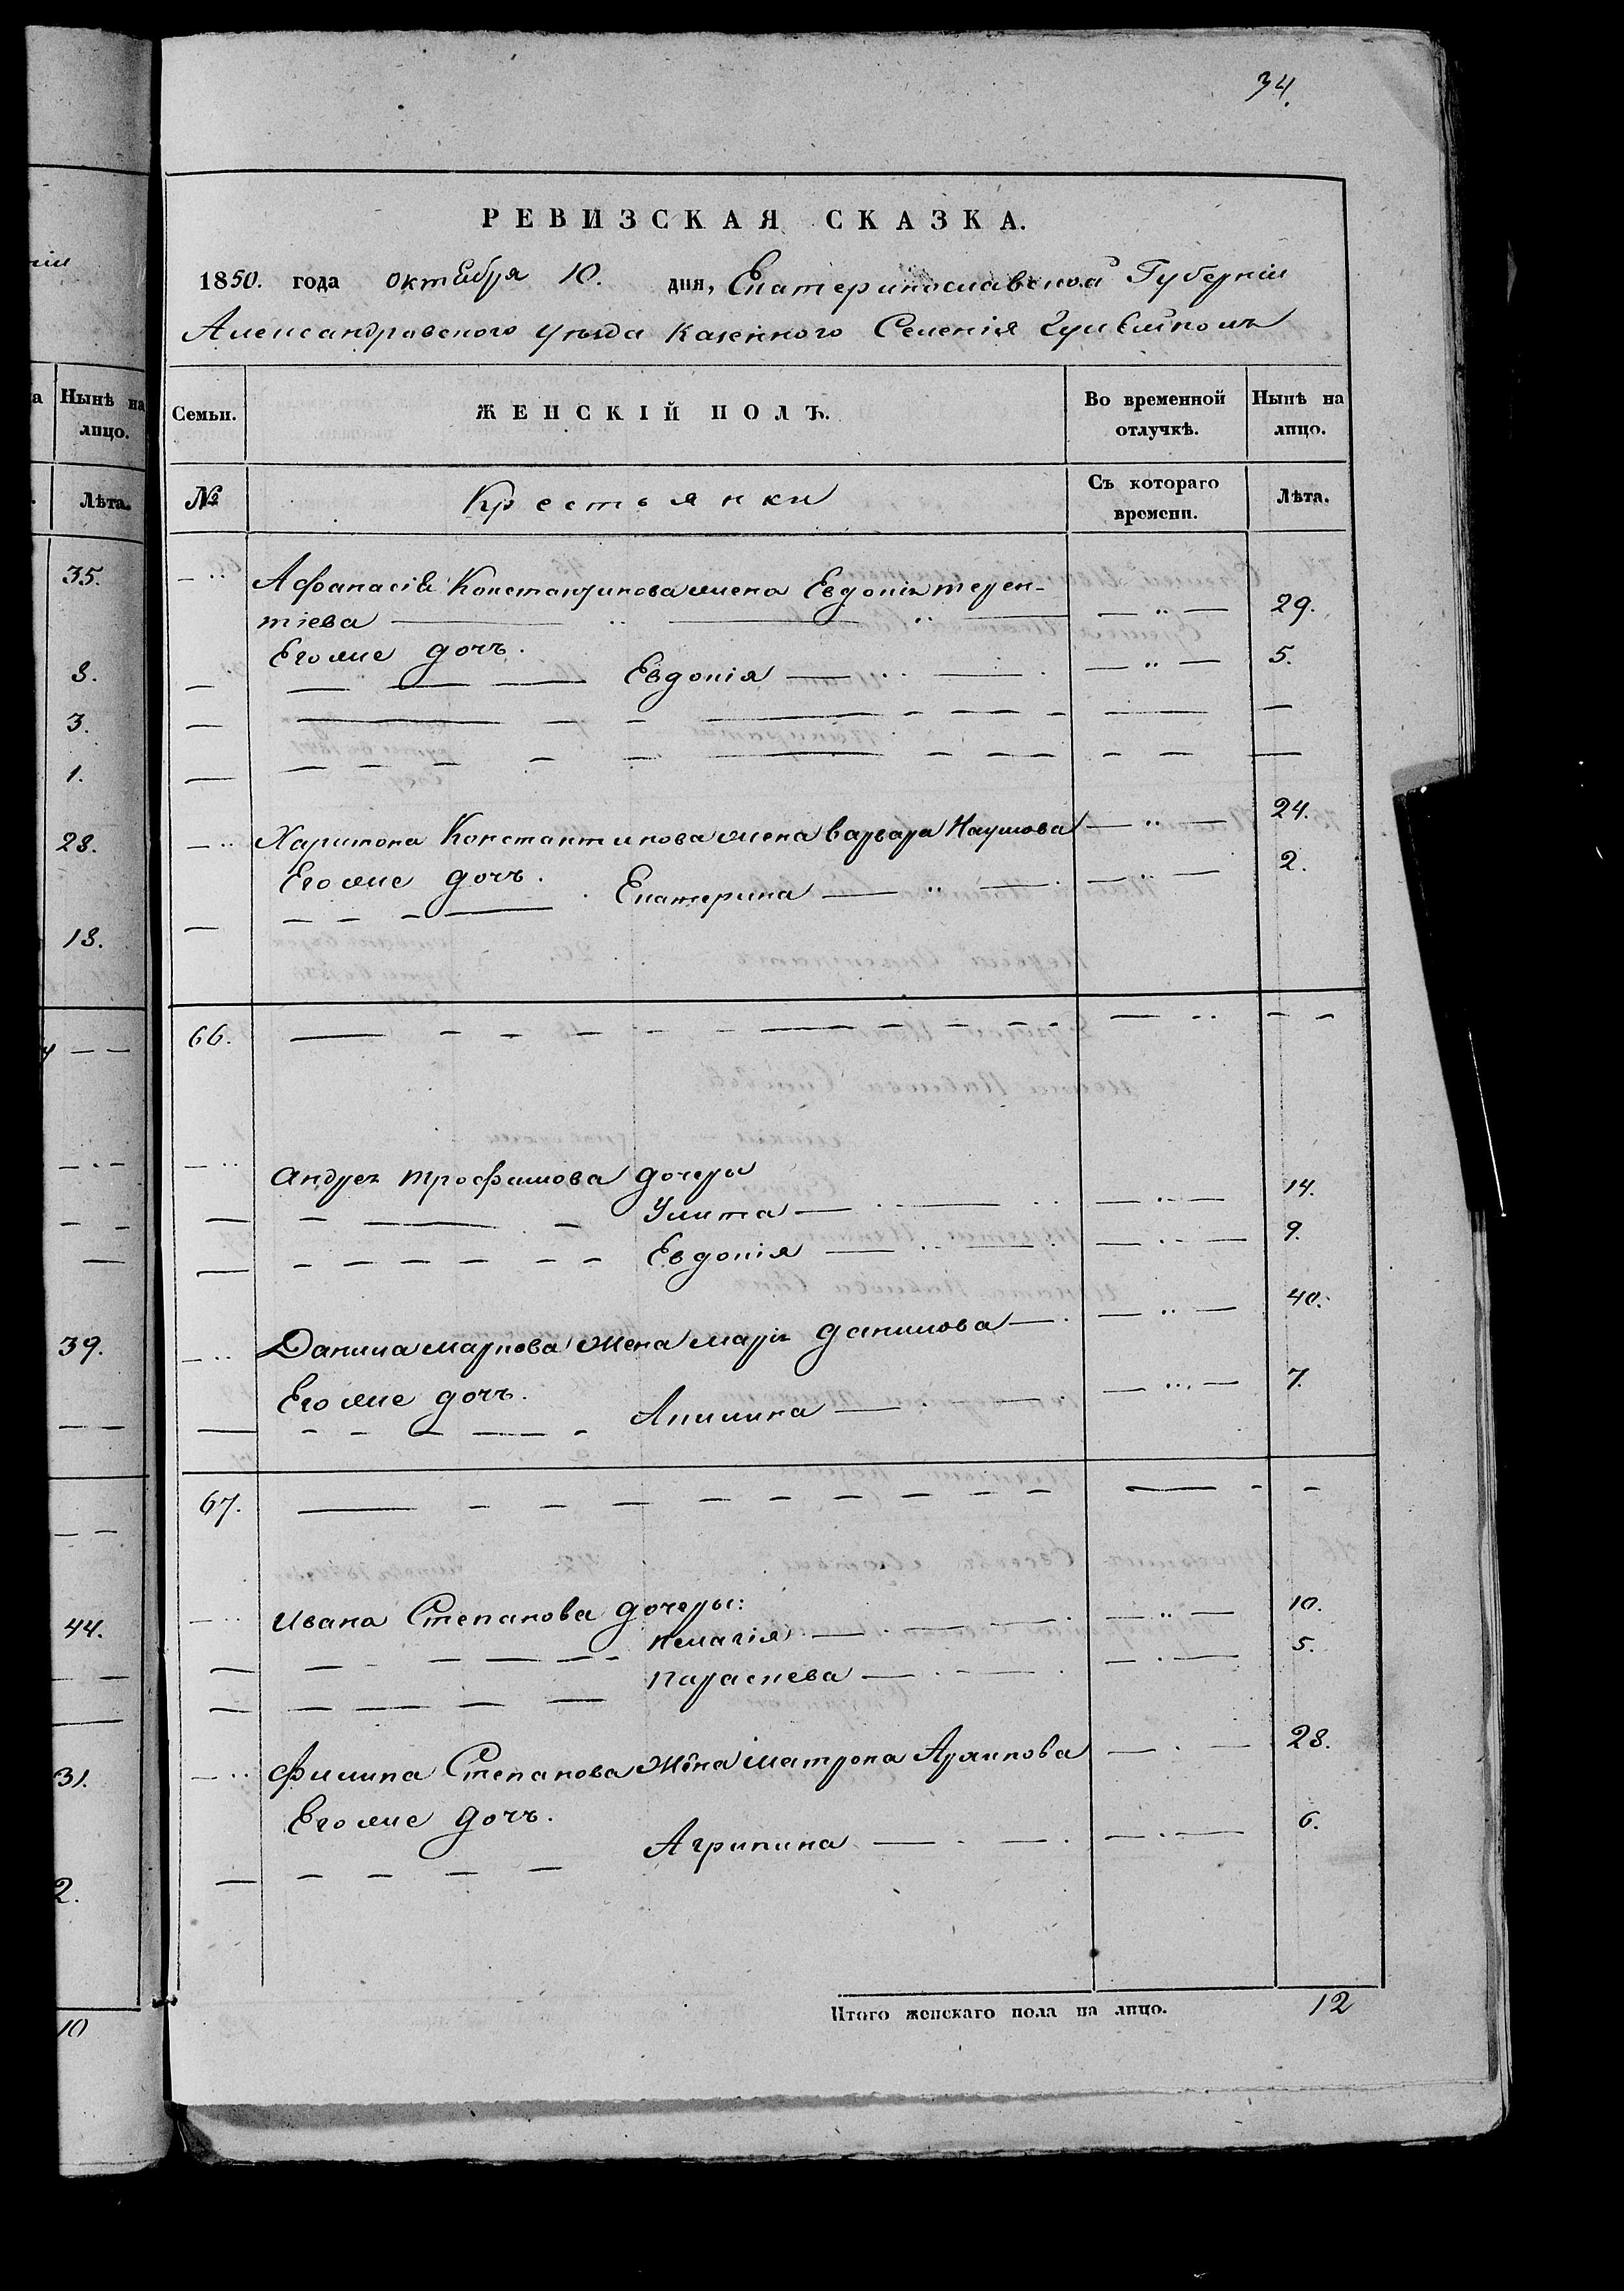 34.
РЕВИЗСКАЯ СКАЗКА.
1850. года октября 10. дня, Екатеринославской Губерніи
Александровского уѣзда казенного Селенія
Нынѣ на лицо.
Лѣта.
35.
8.
3.
1.
28.
18.
39.
44.
31.
2.
10
Семьи. ЖЕНСКІЙ ПОЛЪ. Во временной отлучкѣ. Нынѣ на лицо.
№ Крестьянки Съ котораго времени. Лѣта.
Афанасія Константинова жена Евдокія терен-
тіева 29.
Его же дочь.
Евдокія 5.
Харитона Константинова жена варвара Наумова 24.
Его же дочь.
Екатерина 2.
66.
андрея трофимова дочеры
Улита 14.
Евдокія 9.
Данила маркова жена марія данилова 40.
Его же дочь.
Акилина 7.
67.
Ивана Степанова дочеры:
пелагія 10.
параскева 5.
Филипа Степанова жена матрона Архипова 28.
Его же дочь.
Агрипина 6.
Итого женскаго пола на лицо. 12